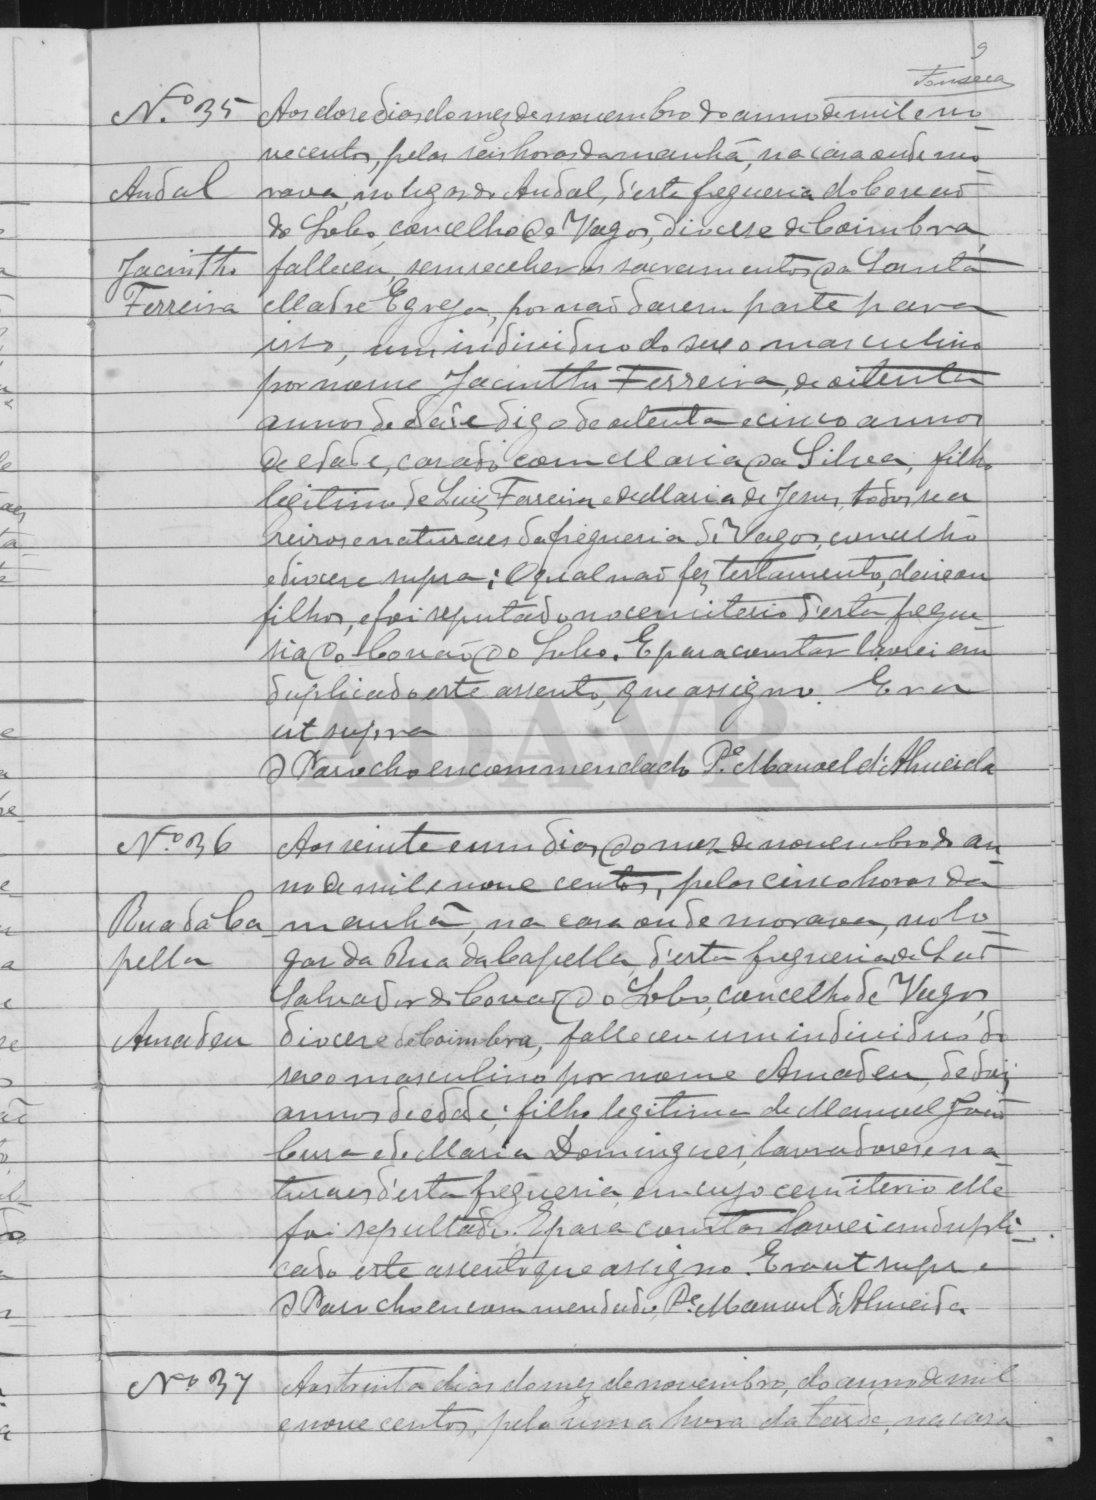 9
Fonseca
N.º 35
Andal
Jacintho
Ferreira
Aos doze dias do mez de novembro do anno de mil e no
vecentos, pelas seis horas da manhã, na casa onde mo
rava, no logar do Andal, d'esta freguesia do Covão
do Lobo, concelho de Vagos, diocese de Coimbra,
falleceu, sem receber os sacramentos da Santa
Madre Egreja, por não darem parte para
isso, um individuo do sexo masculino
por nome Jacintho Ferreira, de oitenta
annos de edade digo de oitenta e cinco annos
de edade, casado com Maria da Silva, filho
legitimo de Luiz Ferreira e de Maria de Jesus, todos
e naturaes da freguesia de Vagos, concelho
e diocese supra; o qual não fez testamento, deixou
filhos, e foi sepultado no cemiterio d'esta fregue
sia do Covão do Lobo. E para constar lavrei em
duplicado este assento, que assigno. Era
ut supra
O Parocho encommendado P.e Manoel d'Almeida
ADAVR
N.º 36
Rua da Ca
pella
Amadeu
Aos vinte e um dias do mez de novembro do an
no de mil e nove centos, pelas cinco horas da
manhã, na casa onde morava, no lo
gar da Rua da Capella, d'esta freguesia de São
Salvador do Covão do Lobo, concelho de Vagos,
diocese de Coimbra, falleceu um individuo do
sexo masculino por nome Amadeu, de dois
annos de edade; filho legitimo de Manuel João
e de Maria Domingues, lavradores e na
turaes d'esta freguesia, em cujo cemiterio elle
foi sepultado. E para constar lavrei em dupli
cado este assento que assigno. Era ut supra
O Parocho encommendado, P.e Manuel d'Almeida
Nº 37
Aos trinta dias do mez de novembro, do anno de mil
e nove centos, pela uma hora da tarde, na casa